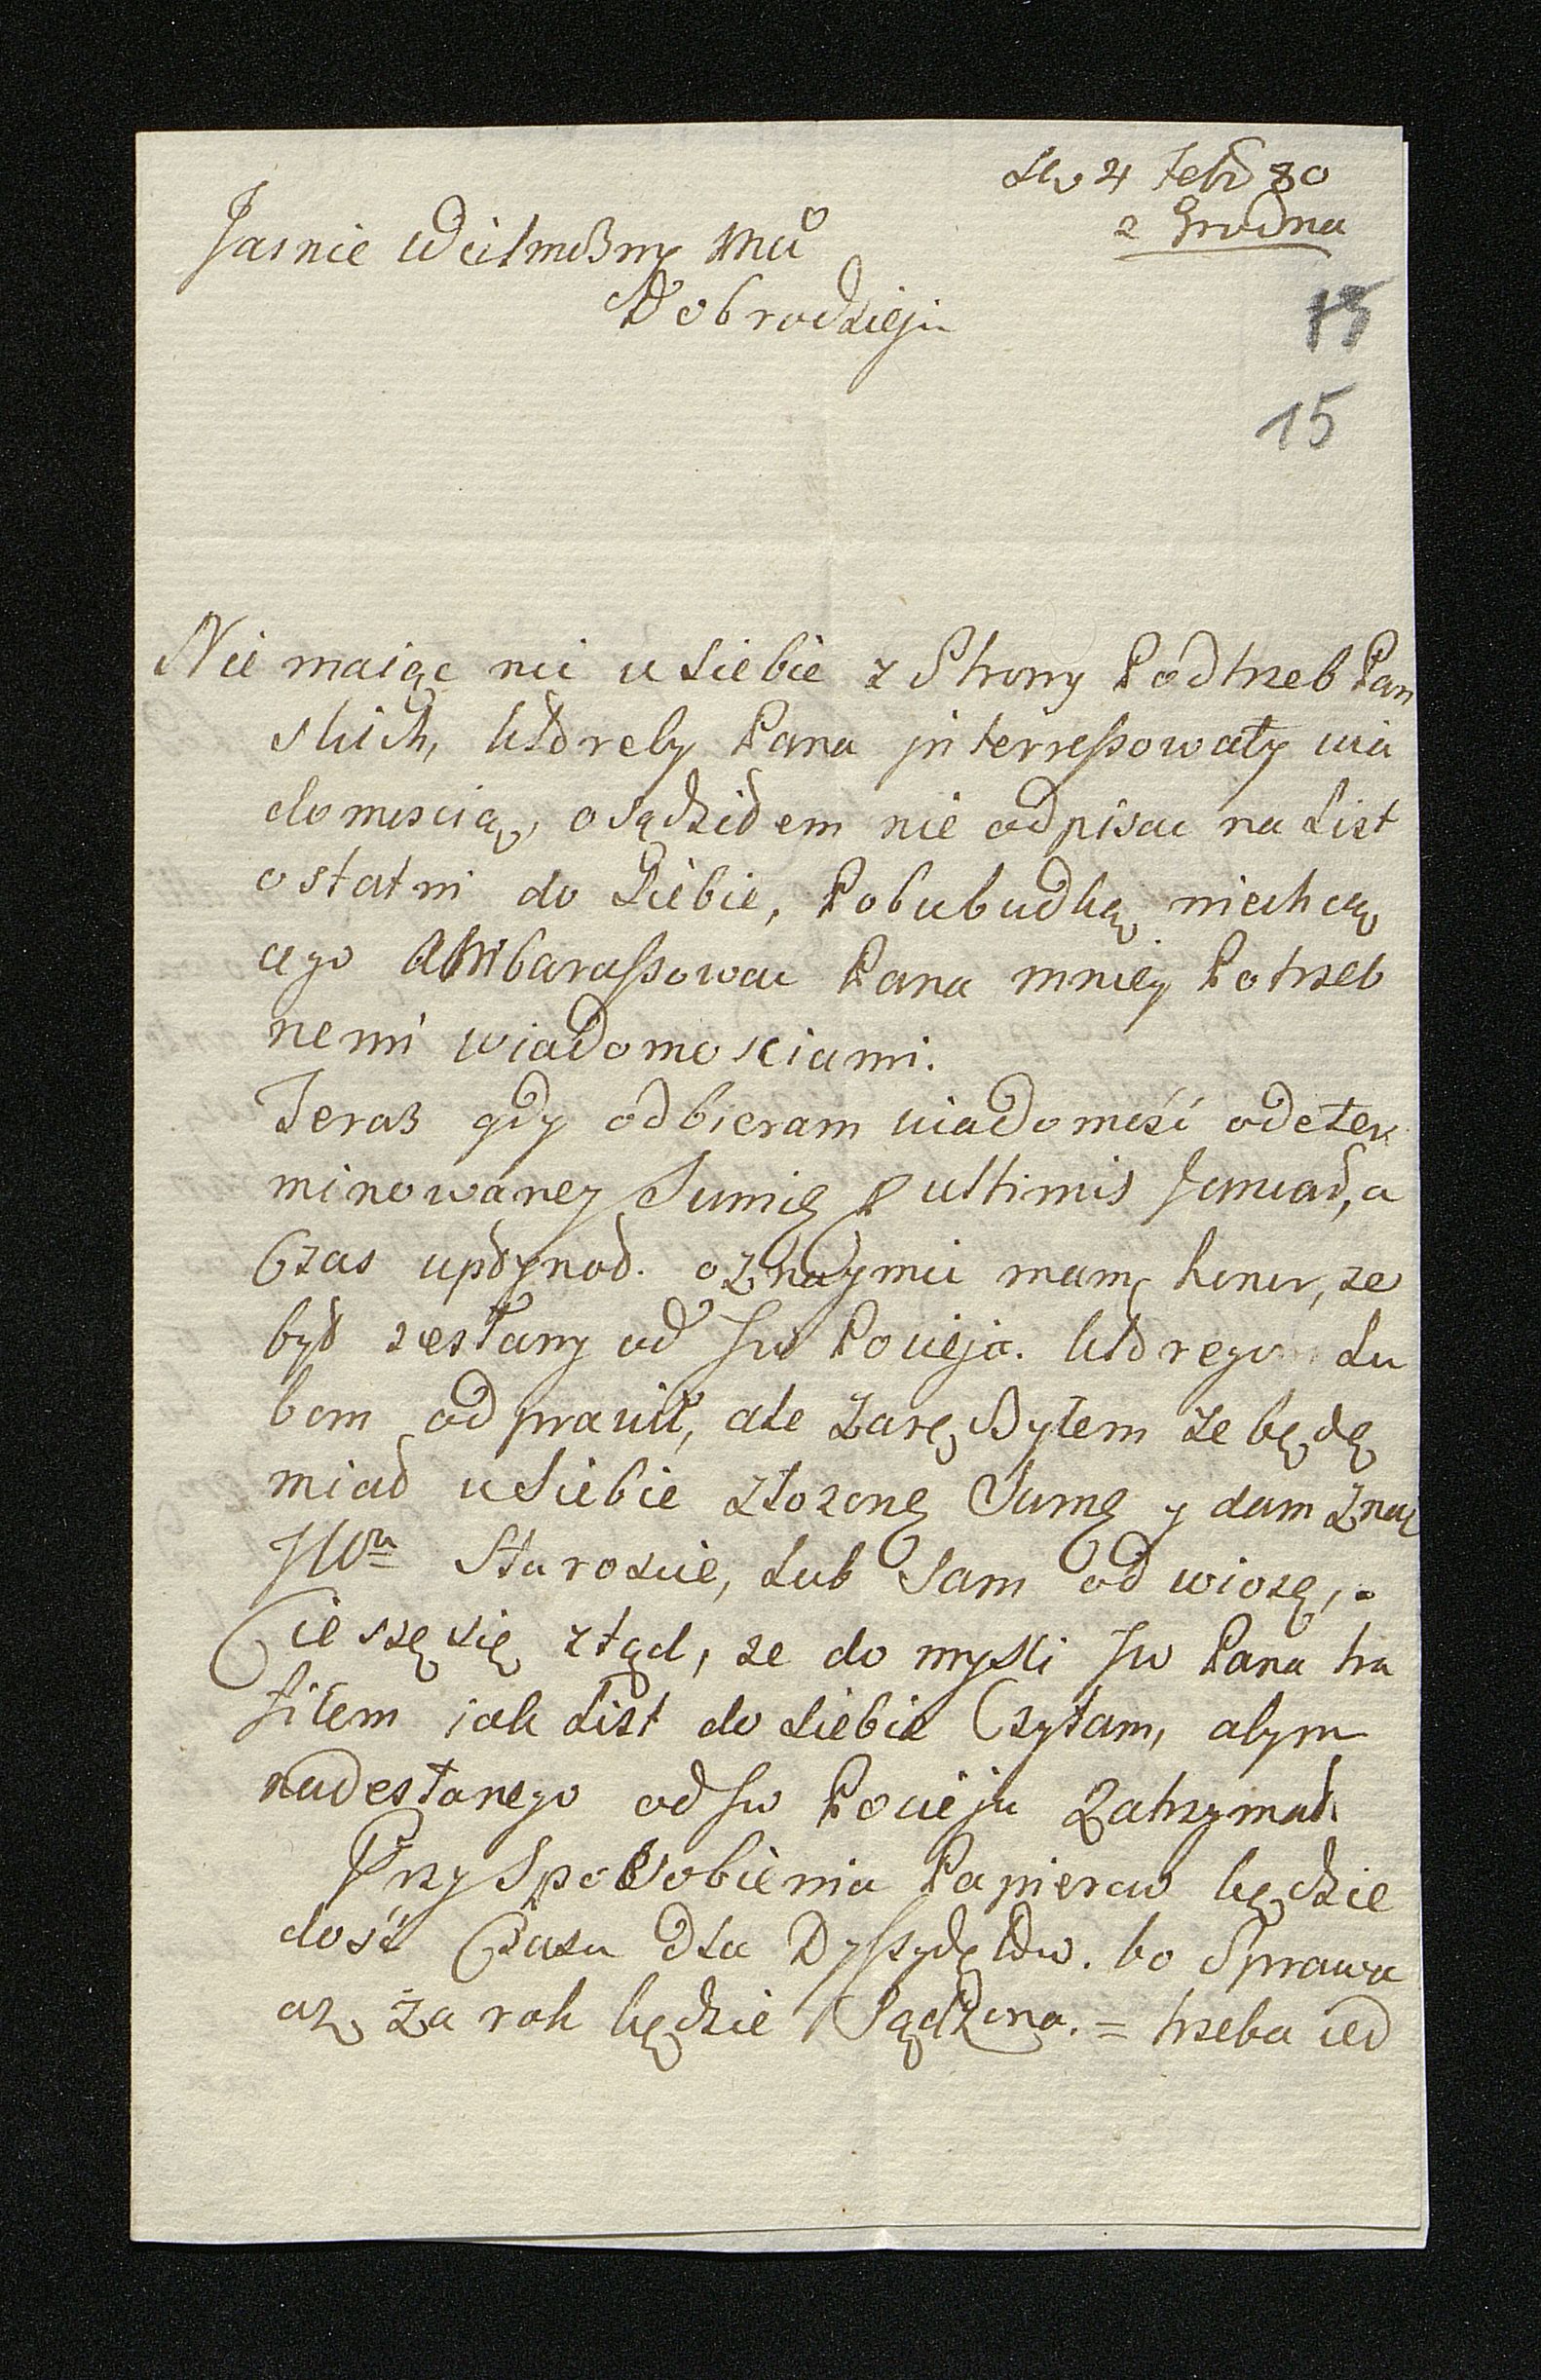 4 Febr 80
z Grodna
Jasnie Wielmożny Mci
Dobrodzieju
15
15
Nie maiąc nic u siebie z Strony Podtrzeb Pan
skich, któreby Pana jnterressowały wia
domoscią, osądziłem nie odpisac na List
ostatni do siebie, Pobubudką niechcą
cego Ambarassowac Pana mniey Potrzeb
nemi wiadomosciami.
Teraz gdy odbieram wiadomość odeter
minowaney Sumie p ultimis Januar, a
Czas upłynoł. oznaymic mam honor, ze
był zesłany od Jw Pocieja. którego Lu
bom odprawił, ale zaręczyłem ze będę
miał u siebie złozonę Sumę y dam znac
JWu Staroscie, Lub sam odwiozę,.
Cieszę się ztąd, ze do mysli Jw Pana tra
fiłem iak List do siebie Czytam, abym
nadesłanego od Jw Pocieja zatrzymał.
Przysposobienia Papierow będzie
dość Czasu dla Dyssydętów. bo Sprawa
az za rok będzie Sądzona. = trzeba ied